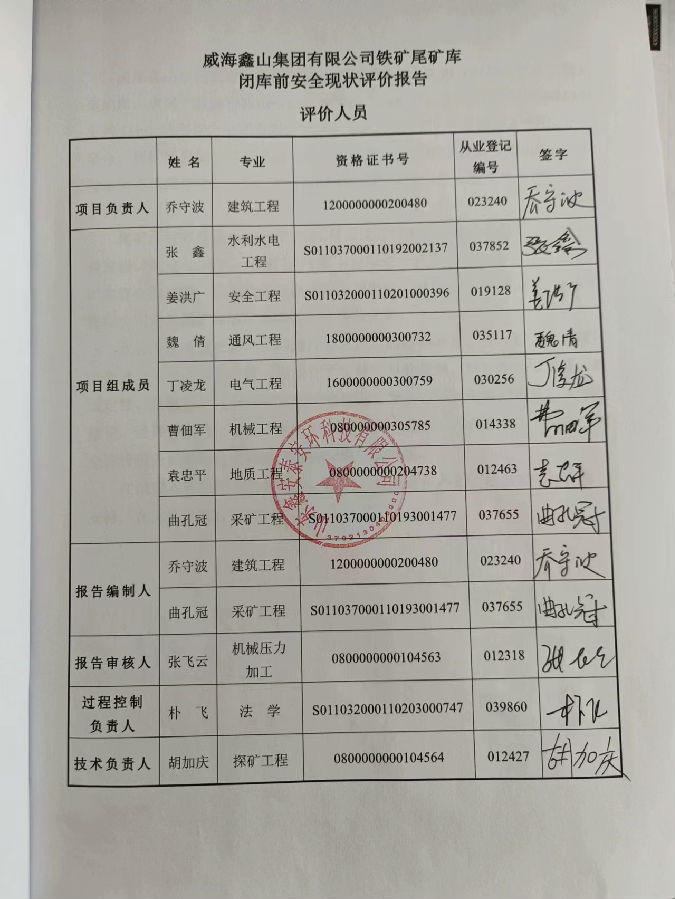 威海鑫山集团有限公司铁矿尾矿库
闭库前安全现状评价报告
评价人员
姓 名 专业 资格证书号 从业登记编号 签字
项目负责人 乔守波 建筑工程 1200000000200480 023240 乔守波
项目组成员
张 鑫 水利水电工程 S011037000110192002137 037852 张鑫
姜洪广 安全工程 S011032000110201000396 019128 姜洪广
魏 倩 通风工程 1800000000300732 035117 魏倩
丁凌龙 电气工程 1600000000300759 030256 丁凌龙
曹佃军 机械工程 0800000000305785 014338 曹佃军
袁忠平 地质工程 0800000000204738 012463 袁忠平
曲孔冠 采矿工程 S011037000110193001477 037655 曲孔冠
报告编制人
乔守波 建筑工程 1200000000200480 023240 乔守波
曲孔冠 采矿工程 S011037000110193001477 037655 曲孔冠
报告审核人 张飞云 机械压力加工 0800000000104563 012318 张飞云
过程控制负责人 朴 飞 法 学 S011032000110203000747 039860 朴飞
技术负责人 胡加庆 探矿工程 0800000000104564 012427 胡加庆
安泰安环科技有限公司